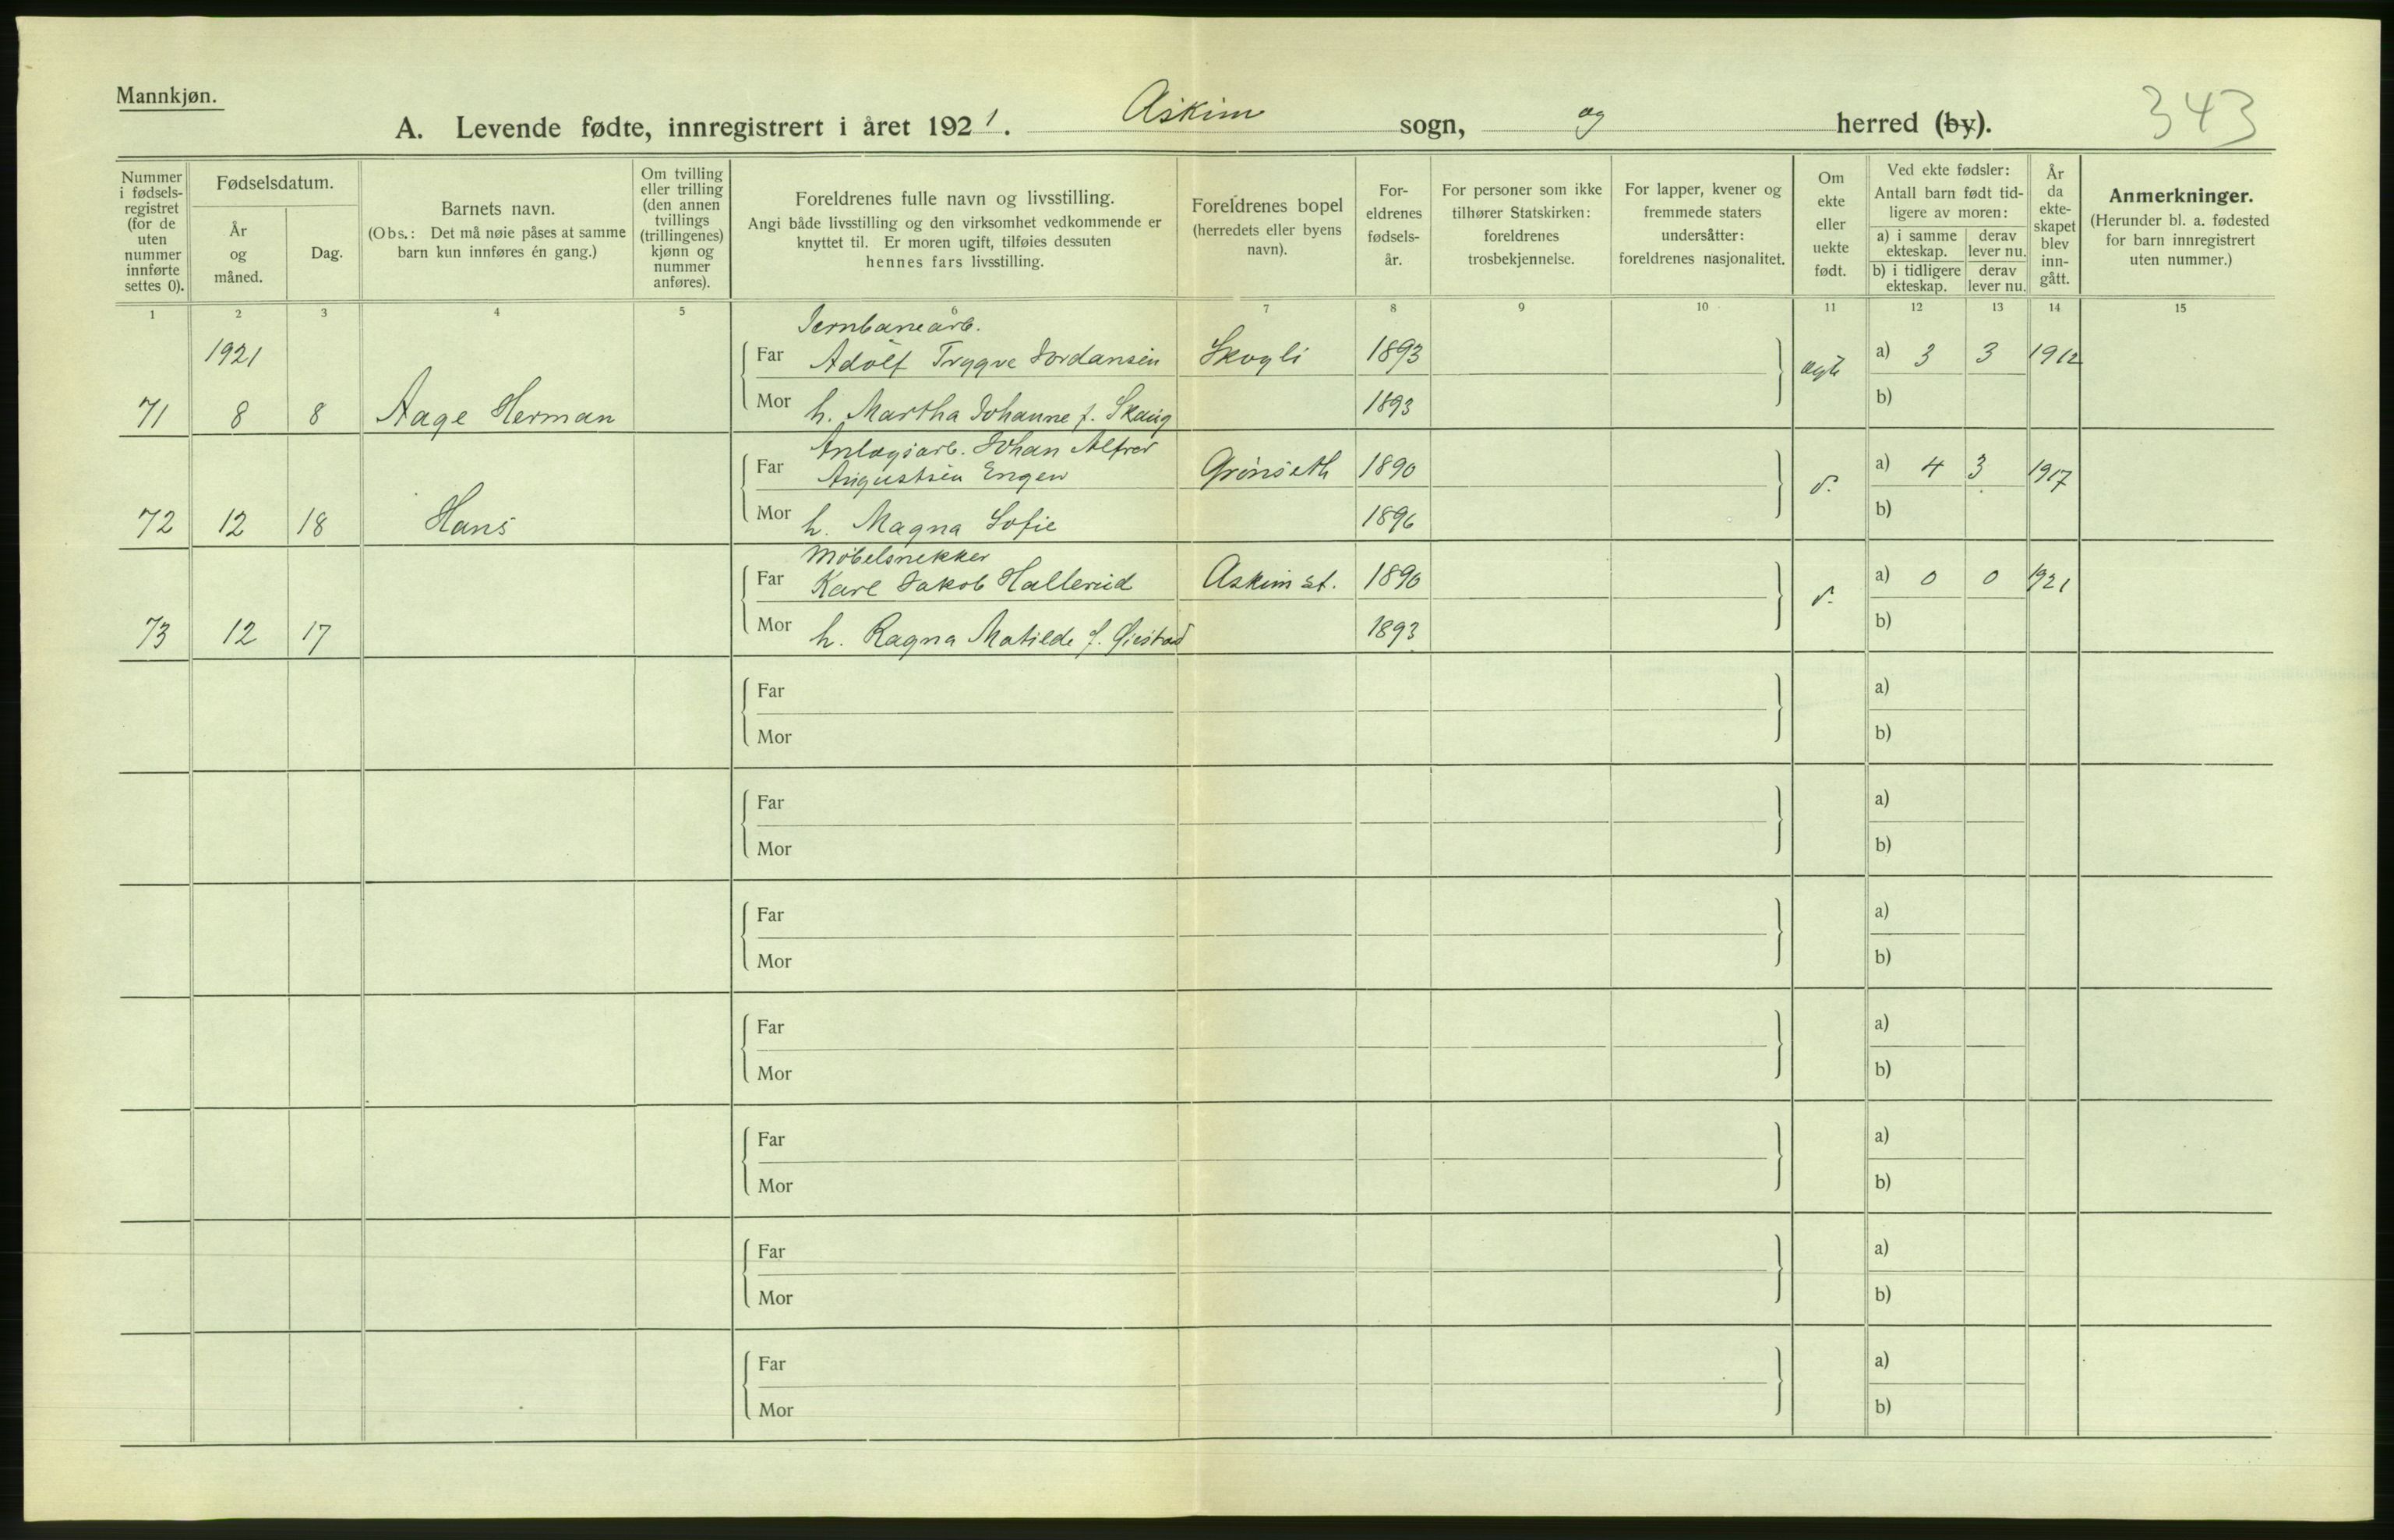 Mannkjøn.
A. Levende fødte, innregistrert i året 1921. Askim sogn, og herred (by).
343
Nummer i fødsels-registret (for de uten nummer innførte settes 0).
Fødselsdatum.
År og måned.
Dag.
Barnets navn.
(Obs.: Det må nøie påses at samme barn kun innføres én gang.)
Om tvilling eller trilling (den annen tvillings (trillingenes) kjønn og nummer anføres).
Foreldrenes fulle navn og livsstilling.
Angi både livsstilling og den virksomhet vedkommende er knyttet til. Er moren ugift, tilføies dessuten hennes fars livsstilling.
Foreldrenes bopel (herredets eller byens navn).
For-eldrenes fødsels-år.
For personer som ikke tilhører Statskirken: foreldrenes trosbekjennelse.
For lapper, kvener og fremmede staters undersåtter: foreldrenes nasjonalitet.
Om ekte eller uekte født.
Ved ekte fødsler:
Antall barn født tid-ligere av moren:
a) i samme ekteskap.
derav lever nu.
b) i tidligere ekteskap.
derav lever nu.
År da ekte-skapet blev inn-gått.
Anmerkninger.
(Herunder bl. a. fødested for barn innregistrert uten nummer.)
1 2 3 4 5 6 7 8 9 10 11 12 13 14 15
Jernbanearb.
1921 Far Adolf Trygve Jordansen Skogli 1893 ægte a) 3 3 1912
71 8 8 Aage Herman Mor h. Martha Johanne f. Skaug 1893 b)
Anlægsarb. Johan Alfred
Far Augustsen Engen Grønseth 1890 d. a) 4 3 1917
72 12 18 Hans Mor h. Magna Sofie 1896 b)
Møbelsnekker
Far Karl Jakob Hallerud Askim st. 1890 d. a) 0 0 1921
73 12 17 Mor h. Ragna Matilde f. 1893 b)
Far a)
Mor b)
Far a)
Mor b)
Far a)
Mor b)
Far a)
Mor b)
Far a)
Mor b)
Far a)
Mor b)
Far a)
Mor b)